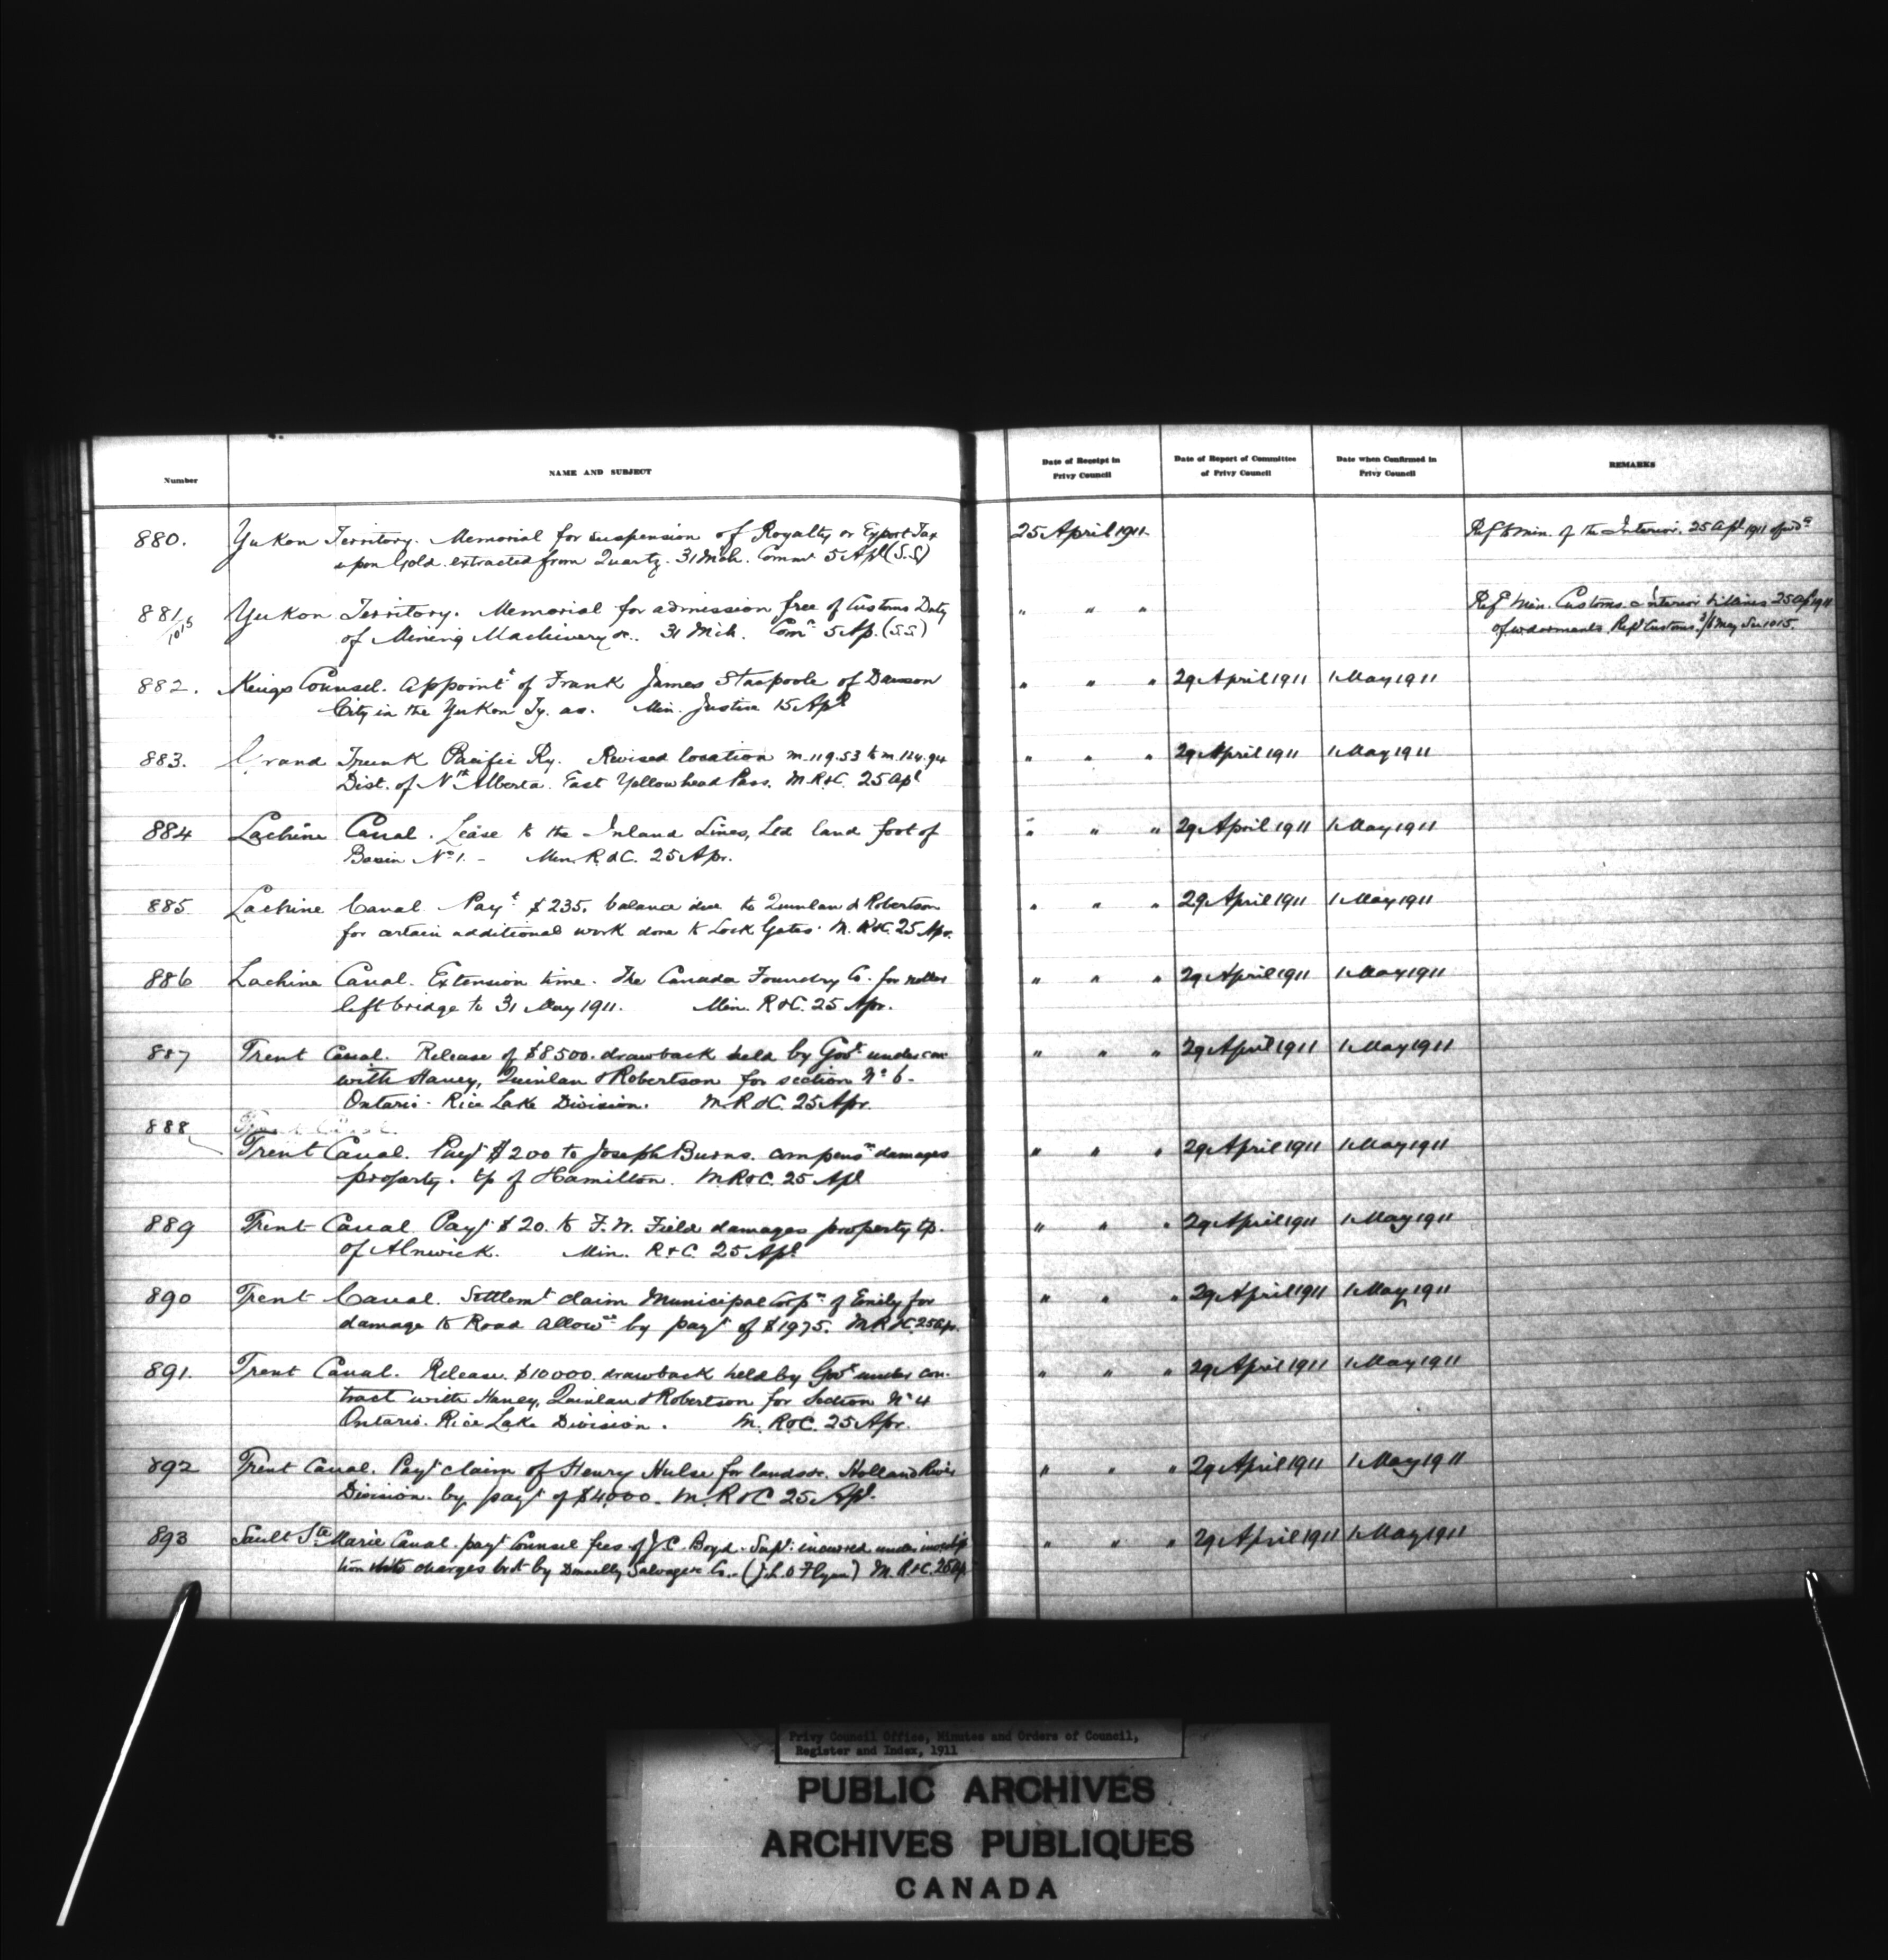 Number
NAME AND SUBJECT
Date of Receipt in Privy Council
Date of Report of Committee of Privy Council
Date when Confirmed in Privy Council
REMARKS
880. Yukon Territory. Memorial for suspension of Royalty or Export Tax 25 April 1911 Ref to Min. of the Interior. 25 Apl 1911
upon Gold extracted from Quartz. 31 Mch. Commr 5 Apl (S.S)
881 Yukon Territory. Memorial for admission free of Customs Duty " " " Ref Min. Customs Interior & Mines 25 Apl 1911
1015 of Mining Machinery &c. 31 Mch. Comr 5 Ap. (S.S) Customs May See 1015.
882. Kings Counsel. Appointt of Frank James Stacpoole of Dawson " " " 29 April 1911 1 May 1911
City in the Yukon Ty. as. Min. Justice 15 Apl
883. Grand Trunk Pacific Ry. Revised location m. 119.53 to m. 124.94 " " " 29 April 1911 1 May 1911
Dist. of Nth Alberta. East Yellowhead Pass. M. R&C. 25 Apl
884 Lachine Canal. Lease to the Inland Lines, Ltd land foot of " " " 29 April 1911 1 May 1911
Basin No 1. - Min. R &C. 25 Apr.
885 Lachine Canal Payt $235. balance due to Quinlan & Robertson " " " 29 April 1911 1 May 1911
for certain additional work done to Lock Gates. M. R&C. 25 Apr.
886 Lachine Canal. Extension time. The Canada Foundry Co. for roller " " " 29 April 1911 1 May 1911
lift bridge to 31 May 1911. Min. R &C. 25 Apr.
887 Trent Canal. Release of $8500. drawback held by Govt under con " " " 29 April 1911 1 May 1911
with Haney, Quinlan & Robertson for section No 6.
Ontario. Rice Lake Division. M. R &C. 25 Apr.
888 Trent Canal.
Trent Canal. Payt $200 to Joseph Burns. compensn damages " " " 29 April 1911 1 May 1911
property. tp of Hamilton. M. R&C. 25 Apl
889 Trent Canal Payt $20. to F. W. Field damages property tp. " " " 29 April 1911 1 May 1911
of Alnwick. Min. R&C. 25 Apl
890 Trent Canal. Settlemt claim Municipal Corpn of Emily for " " " 29 April 1911 1 May 1911
damage to Road allowce by payt of $1975. M R &C. 25 Ap.
891. Trent Canal. Release $10000. drawback held by Govt under con- " " " 29 April 1911 1 May 1911
tract with Haney, Quinlan & Robertson for Section No 4
Ontario. Rice Lake Division. M. R&C. 25 Apr.
892 Trent Canal. Payt claim of Henry Hulse for lands &c. Holland River " " " 29 April 1911 1 May 1911
Division. by payt of $4000. M. R &C 25 Apl.
893 Sault Ste Marie Canal. payt Counsel fees of J C. Boyd. Supt. incurred under investiga " " " 29 April 1911 1 May 1911
tion into charges brot by Donnelly Salvage &c Co. (J. L. O'Flynn) M. R&C. 25 Ap
Privy Council Office, Minutes and Orders of Council,
Register and Index, 1911
PUBLIC ARCHIVES
ARCHIVES PUBLIQUES
CANADA